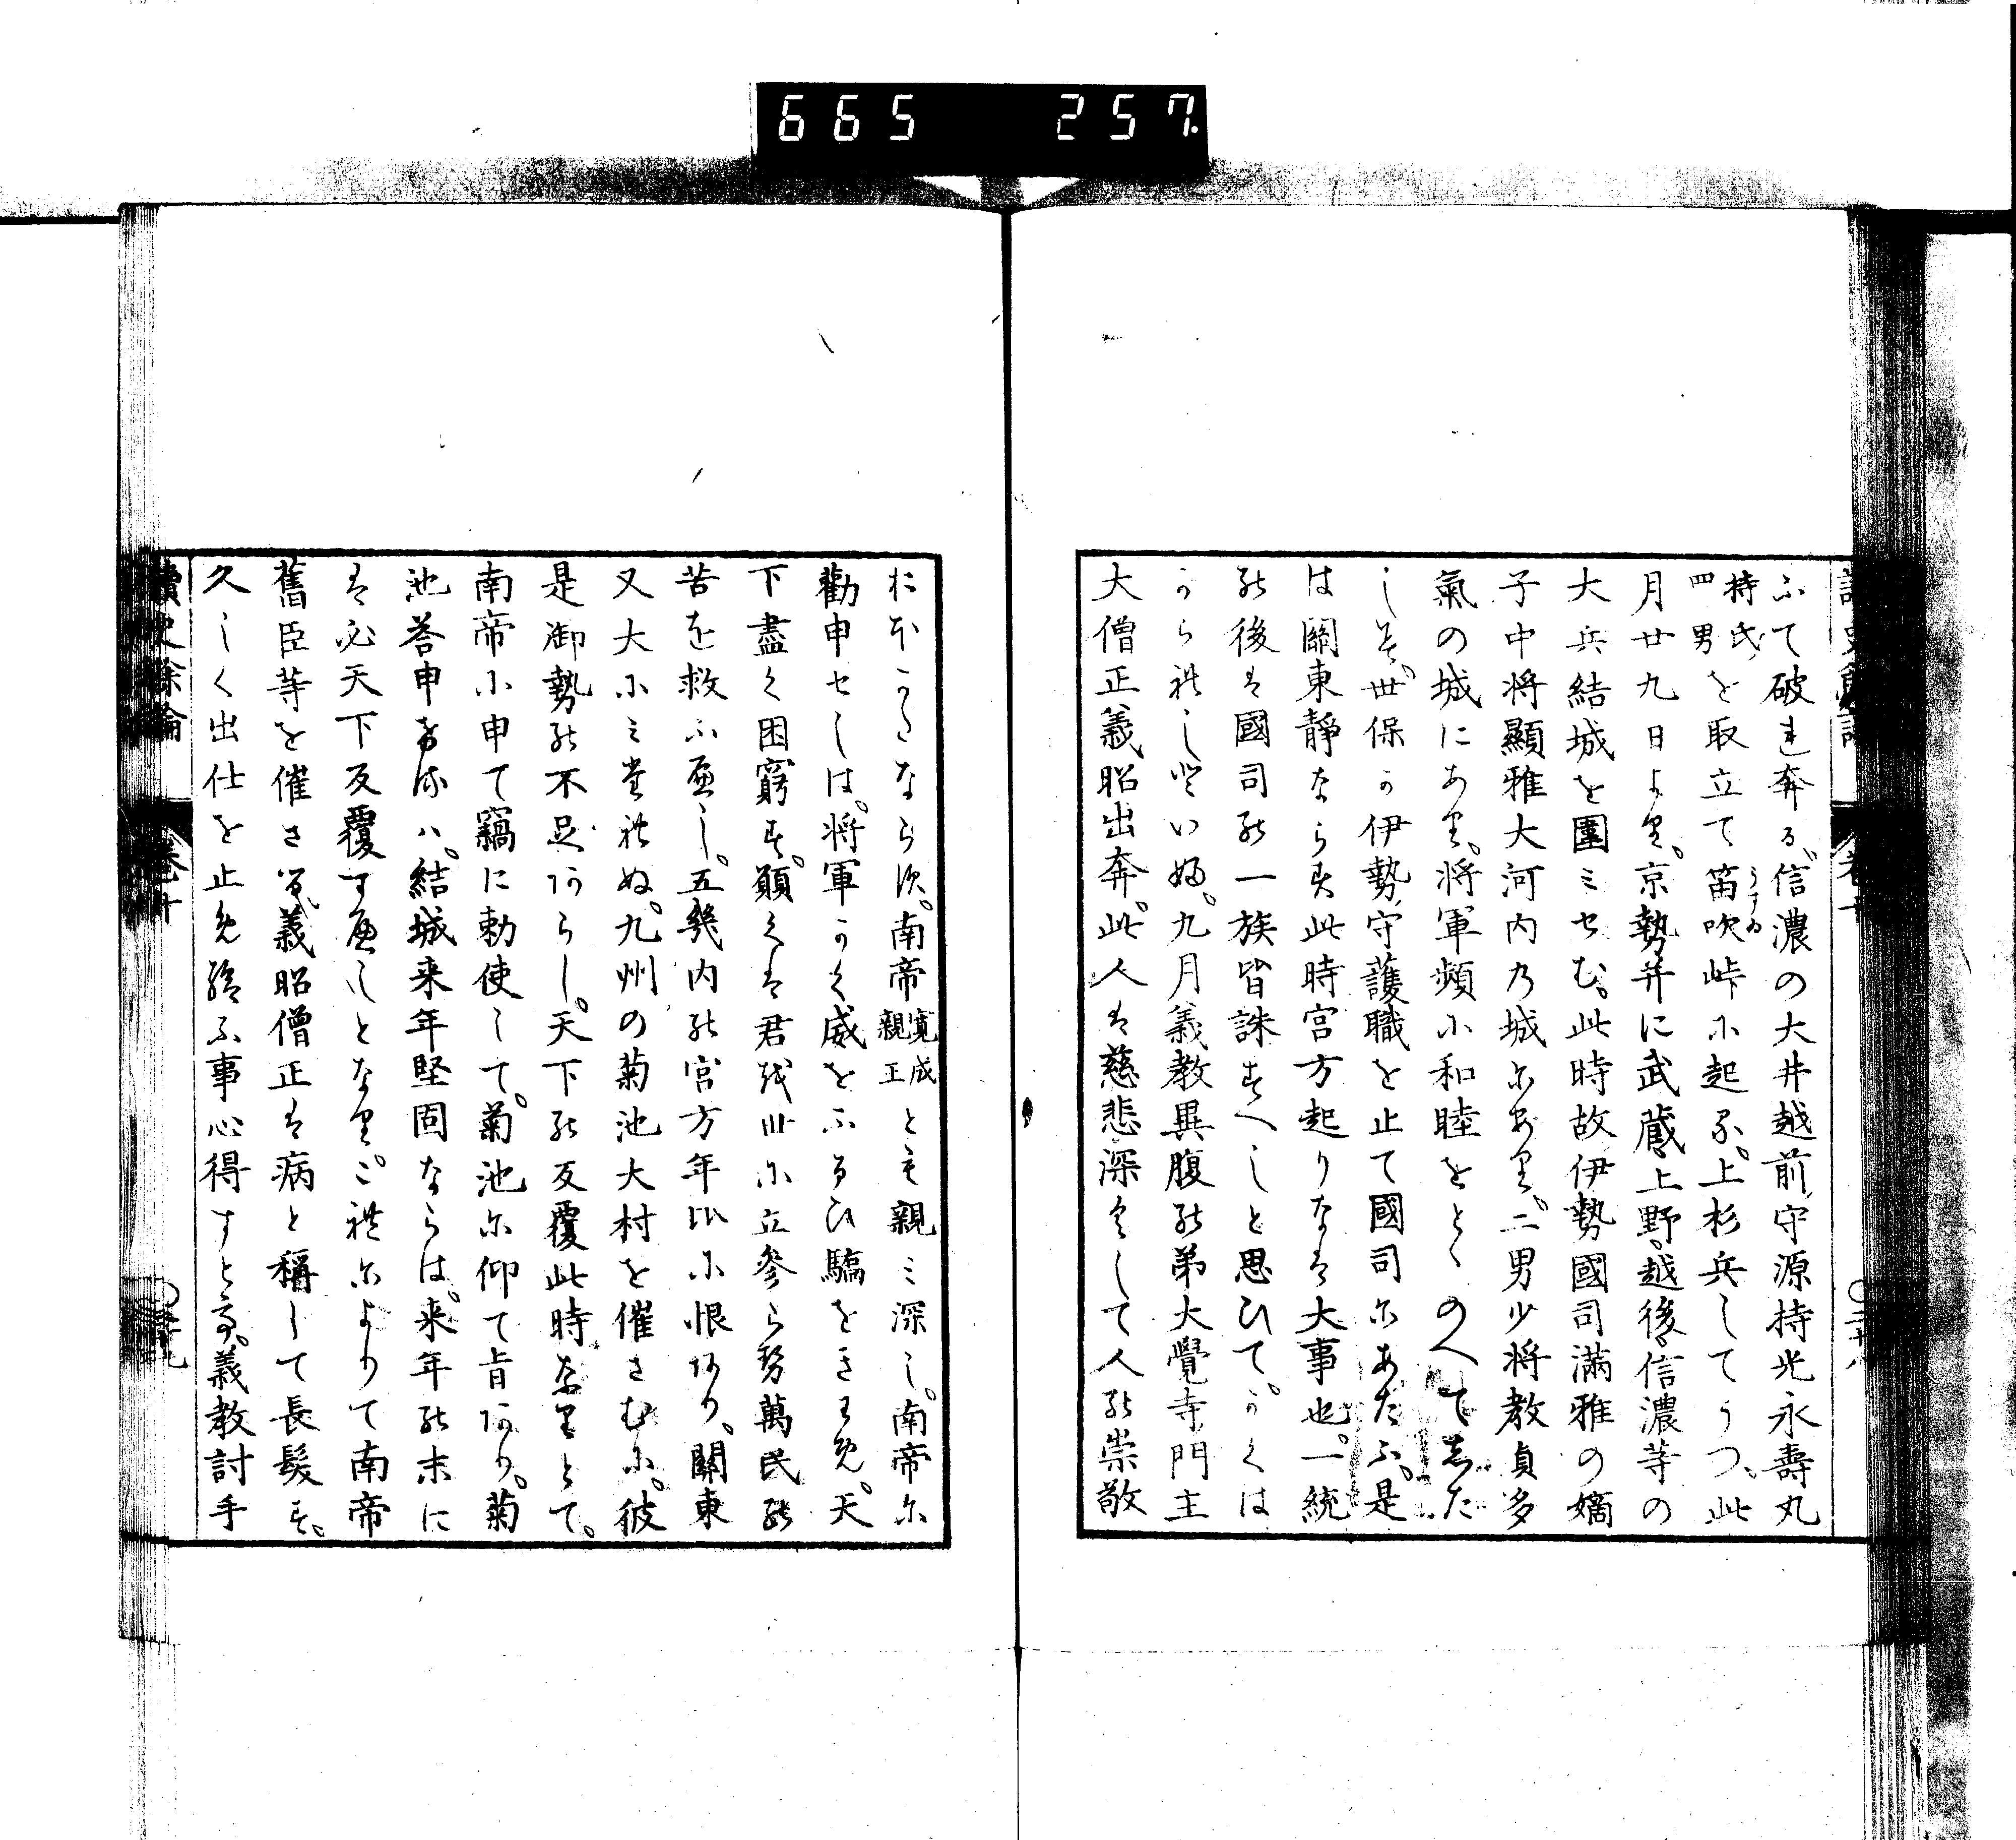 665 257
ふて破れ奔る。信濃の大井越前守源持光永壽丸
持氏四男を取立て笛吹峠に起る。上杉兵してうつ。此
うすゐ
月廿九日より。京勢并に武蔵上野越後信濃等の
大兵結城を圍ミせむ。此時故伊勢國司滿雅の嫡
子中将顯雅大河内乃城にあり。二男少将教貞多
氣の城にあり。将軍頻に和睦をとゝのへてした
しミ。世保の伊勢守護職を止て國司にあたふ。是
は關東靜ならす此時宮方起りなは大事也。一統
の後は國司の一族皆誅すへしと思ひて。かくは
からはれしといふ。九月義教異腹の弟大覺寺門主
大僧正義昭出奔。此人は慈悲深くして人の崇敬
おほかたならす。南帝寛成親王とも親ミ深し。南帝に
勸申せしは。将軍かく威をふるひ驕をきはめ。天
下盡く困窮す。願くは君我世に立参らせ萬民の
苦を救ふへし。五幾内の宮方年比に恨あり。關東
又大にみたれぬ。九州の菊池大村を催さむに。彼
是御勢の不足あらし。天下の反覆此時なりとて。
南帝に申て竊に勅使して。菊池に仰て旨あり。菊
池答申けるハ。結城来年堅固ならは。来年の末に
は必天下反覆すへしとなり。これによりて南帝
舊臣等を催さる。義昭僧正は病と稱して長髪す。
久しく出仕を止め給ふ事心得すとて。義教討手
讀史餘論 巻十